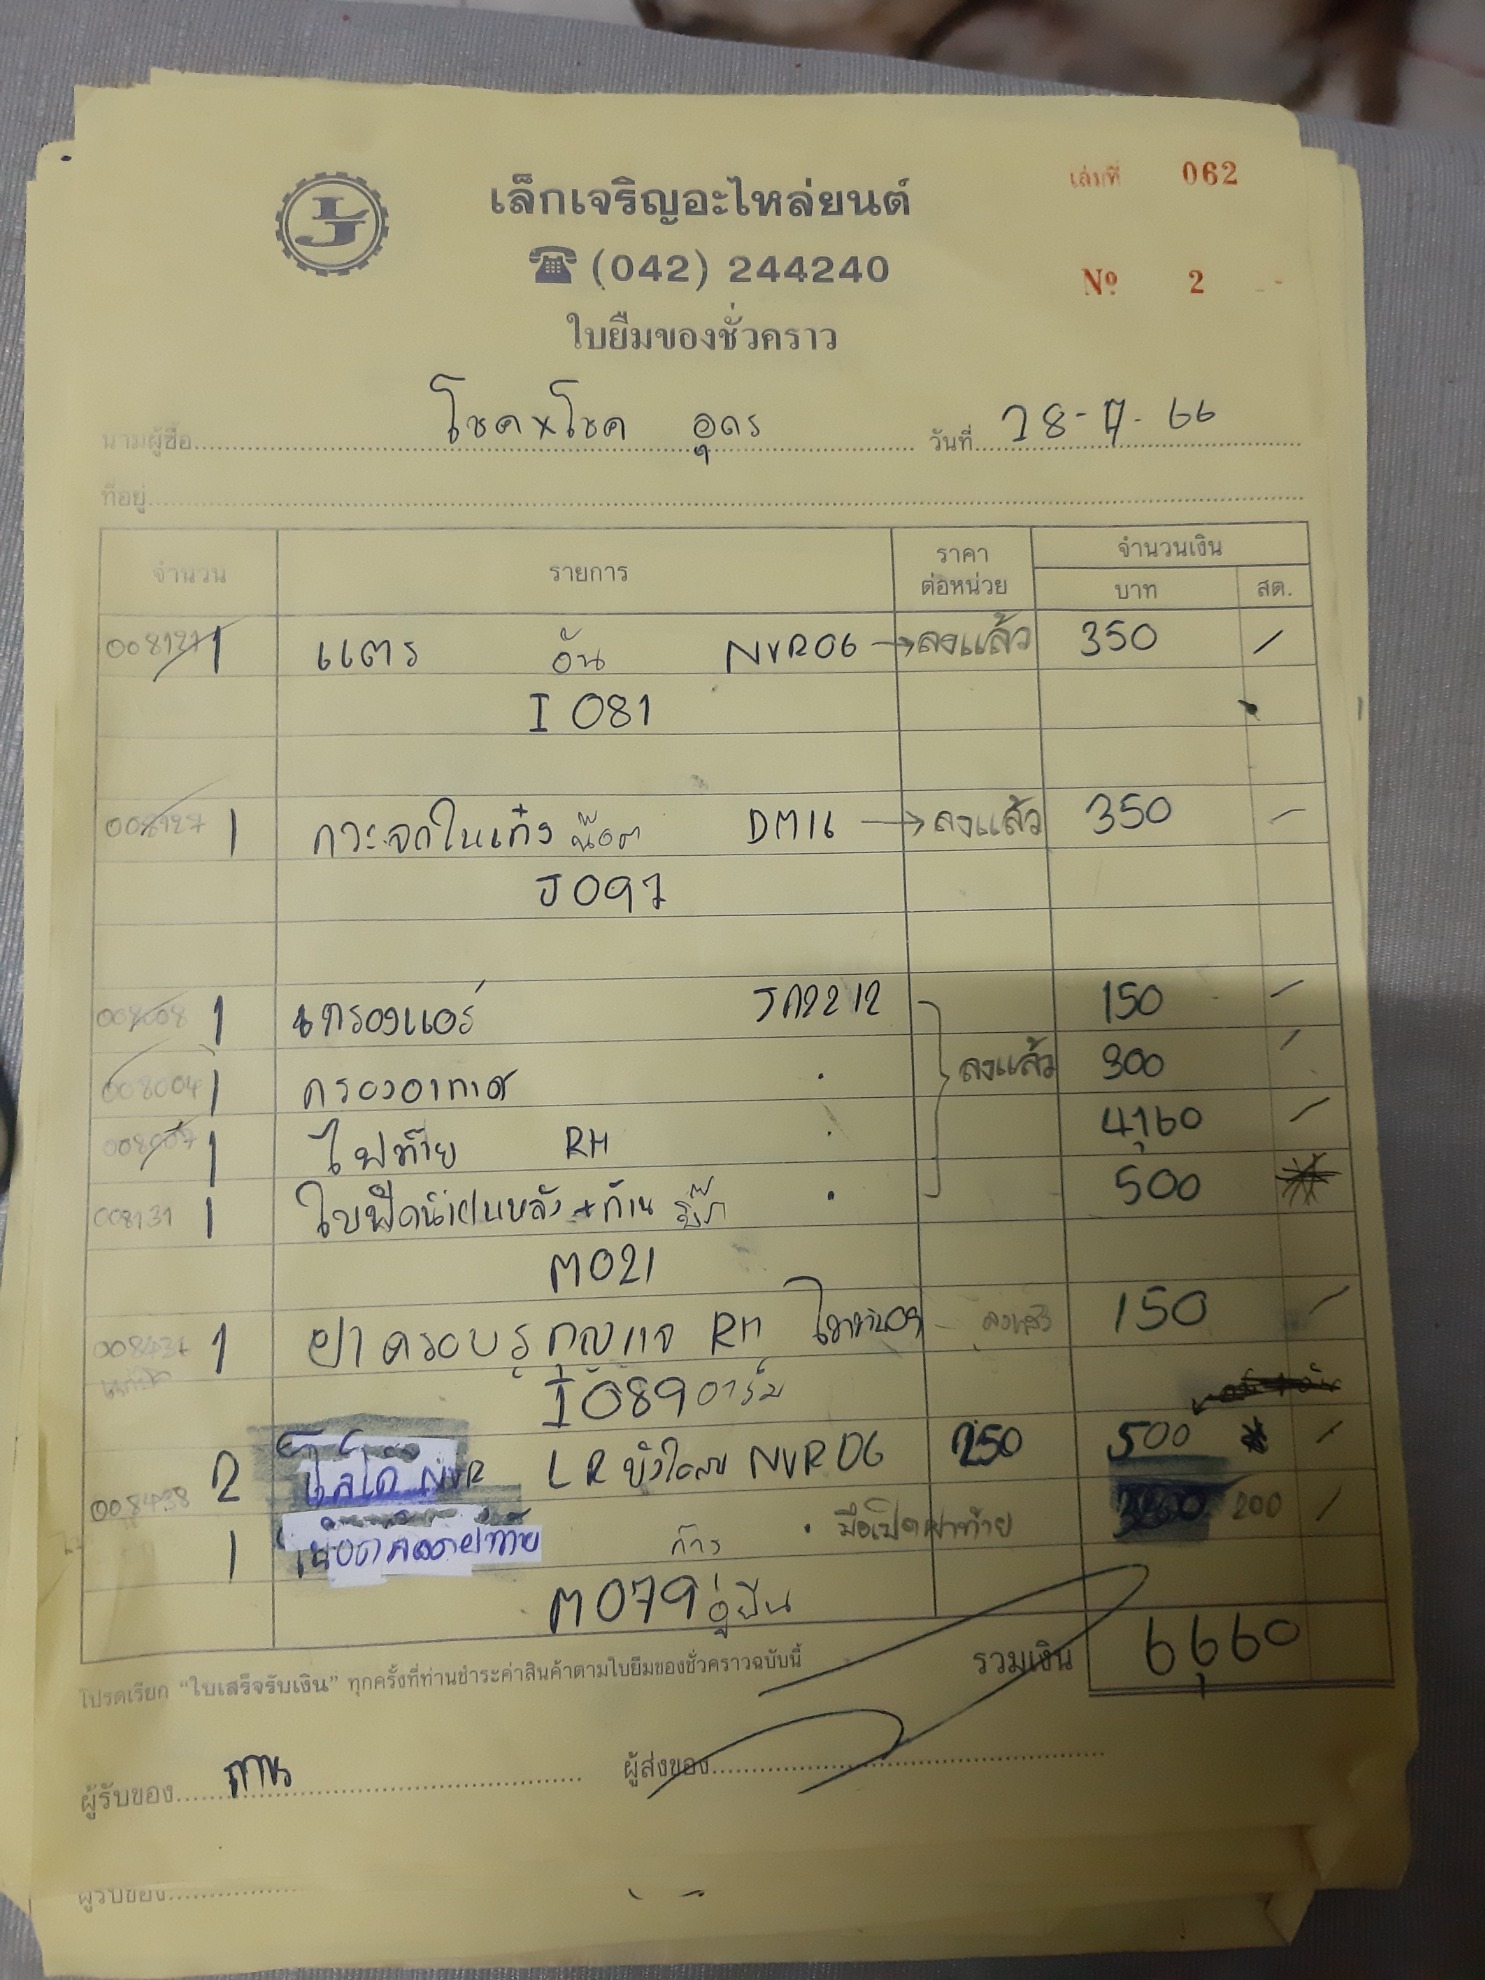 เล่มที่ 062
เล็กเจริญอะไหล่ยนต์
LJ
(042) 244240
Nº 2
ใบยืมของชั่วคราว
นามผู้ซื้อ โชค x โชค อุดร วันที่ 28-7-66
ที่อยู่
จำนวน รายการ ราคาต่อหน่วย จำนวนเงิน
บาท สต.
008127 1 แตร อั๋น NVR06 → ลงแล้ว 350
I 081
008127 1 DM16 → ลงแล้ว 350
J097
008008 1 กรองแอร์ 150
008004 1 กรองอากาศ ลงแล้ว 300
1 ไฟท้าย RH 4,160
008131 1 500
M021
1 ฝาครอบรูกุญแจ RH ลงแล้ว 150
I 089 อาร์ม
008438 2 โลโก้ NVR LR NVR06 250 500
1 มือเปิดฝาท้าย 200
M079
รวมเงิน 6,660
โปรดเรียก “ใบเสร็จรับเงิน” ทุกครั้งที่ท่านชำระค่าสินค้าตามใบยืมของชั่วคราวฉบับนี้
ผู้รับของ ผู้ส่งของ
ผู้รับของ